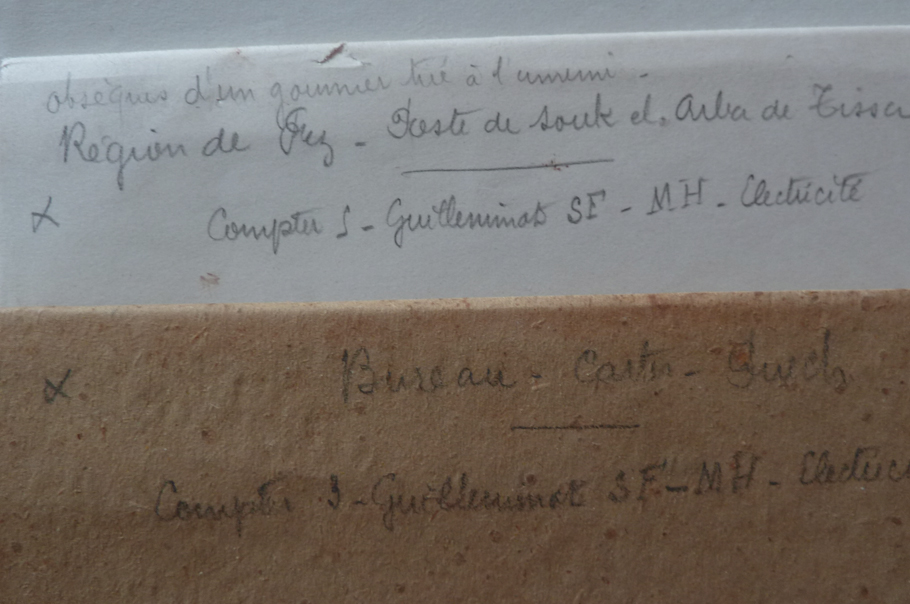 obsèques d'un goumier tué à l'ennemi.
Région de Fez - Poste de souk el. Arba de Tissa
X Compter 1 - Guilleminot SF - MH - Electricité
X Bureau - Cartes -
Compter 1 - Guilleminot SF - MH - Electric